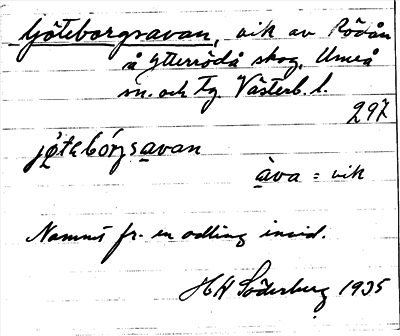 Göteborgsavan, vik av Rödån
å Ytterrödå skog, Umeå
sn. och tg Västerb. l.
297
jö̀tebórjsavan
àva = vik
Namnet fr. en odling invid.
HH Söderberg 1935